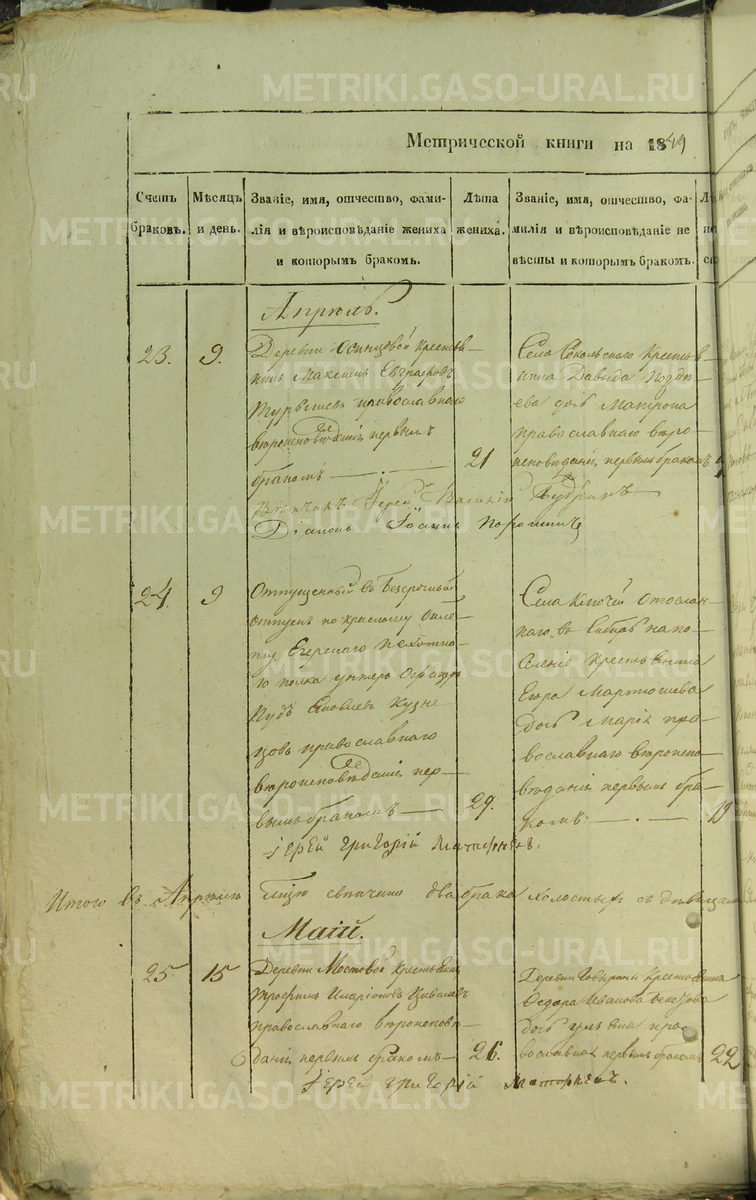 Метрической книги на 1849
Счетъ браковъ.
Мѣсяцъ и день.
Званіе, имя, отчество, фами-
лія и вѣроисповѣданіе жениха
и которымъ бракомъ.
Лѣта жениха.
Званіе, имя, отчество, фа-
милія и вѣроисповѣданіе не
вѣсты и которымъ бракомъ.
Апрѣль.
23. 9.
Деревни Осинцовой Крестья-
нинъ Максимъ Евграфовъ
православнаго
вѣроисповѣданія первымъ
бракомъ
21
Села Сокольскаго Крестья-
нина Давыда Поздѣ-
ева дочь Матрона
православнаго вѣро-
исповѣданія, первымъ бракомъ
Вѣнчалъ Іерей Василій
Діаконъ Іоаннъ
24. 9
Отпущенный въ Безсрочный
отпускъ по красному биле-
ту Егерскаго
го полка унтеръ Офицеръ
Яковлевъ Кузне-
цовъ православнаго
вѣроисповѣданія пер-
вымъ бракомъ
29.
Села Ключей отослан-
наго въ Сибирь на по-
селеніе Крестьянина
Егора Мартюшева
дочь Марія пра-
вославнаго вѣроиспо-
вѣданія первымъ бра-
комъ
19
Іерей Григорій
Итого въ Апрѣлѣ два брака холостыхъ съ дѣвицами
Маій.
25 15
Деревни Мостовой Крестьянинъ
Трофимъ Иларіоновъ
православнаго вѣроисповѣ-
данія, первымъ бракомъ
26.
Деревни Крестьянина
Федора Иванова
дочь Ульяна пра-
вославная первымъ бракомъ
22
Іерей Григорій
METRIKI.GASO-URAL.RU